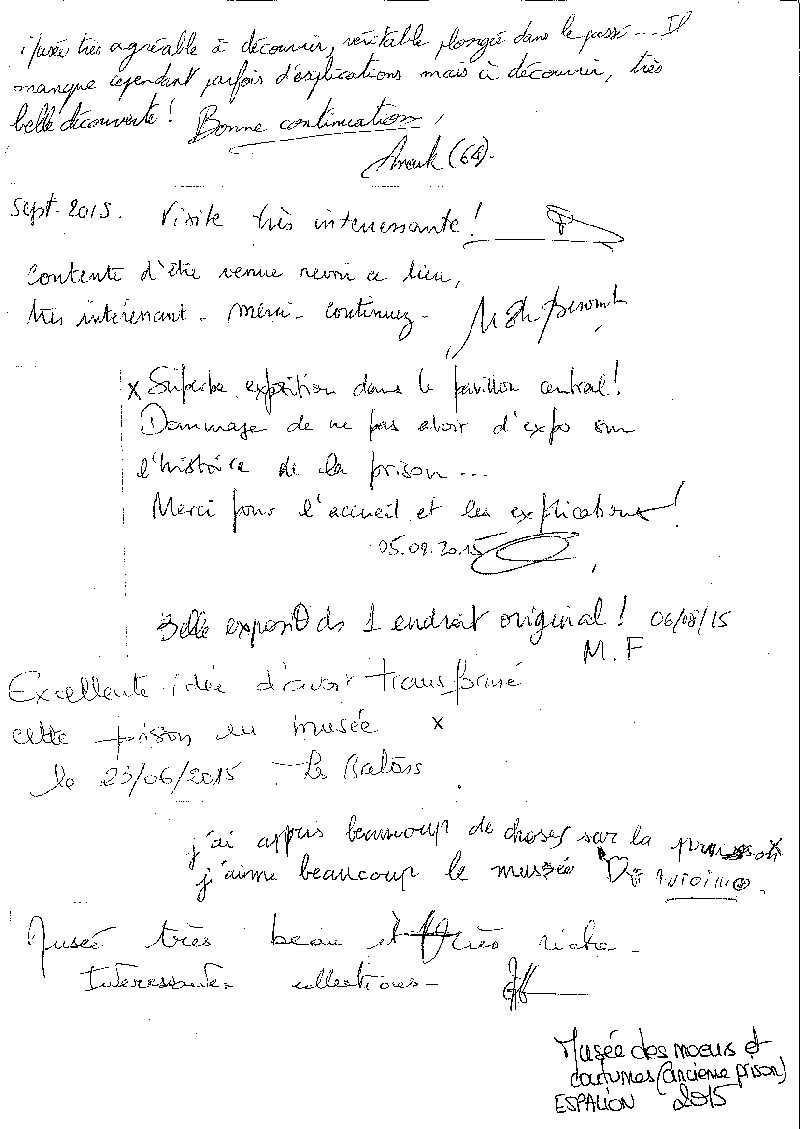 Musée très agréable à découvrir, véritable plongée dans le passé... Il
manque cependant parfois d'explications mais à découvrir, très
belle découverte ! Bonne continuation,
Anouk (64).
Sept. 2015. Visite très interessante !
Contente d'être venue revoir ce lieu,
très intéressant - merci - continuez -
x Superbe expotition dans le pavillon central !
Dommage de ne pas avoir d'expo sur
l'histoire de la prison ...
Merci pour l'accueil et les explications !
05.09.2015
Belle expositO ds 1 endroit original ! 06/08/15
M. F
Excellente idée d'avoir transformé
cette prison en musée x
le 23/06/2015
j'ai appris beaucoup de choses sur la prison
j'aime beaucoup le musée De Antoine.
Musée très beau et très riche -
Interessantes collections -
Musée des moeurs et
coutumes (ancienne prison)
ESPALION 2015